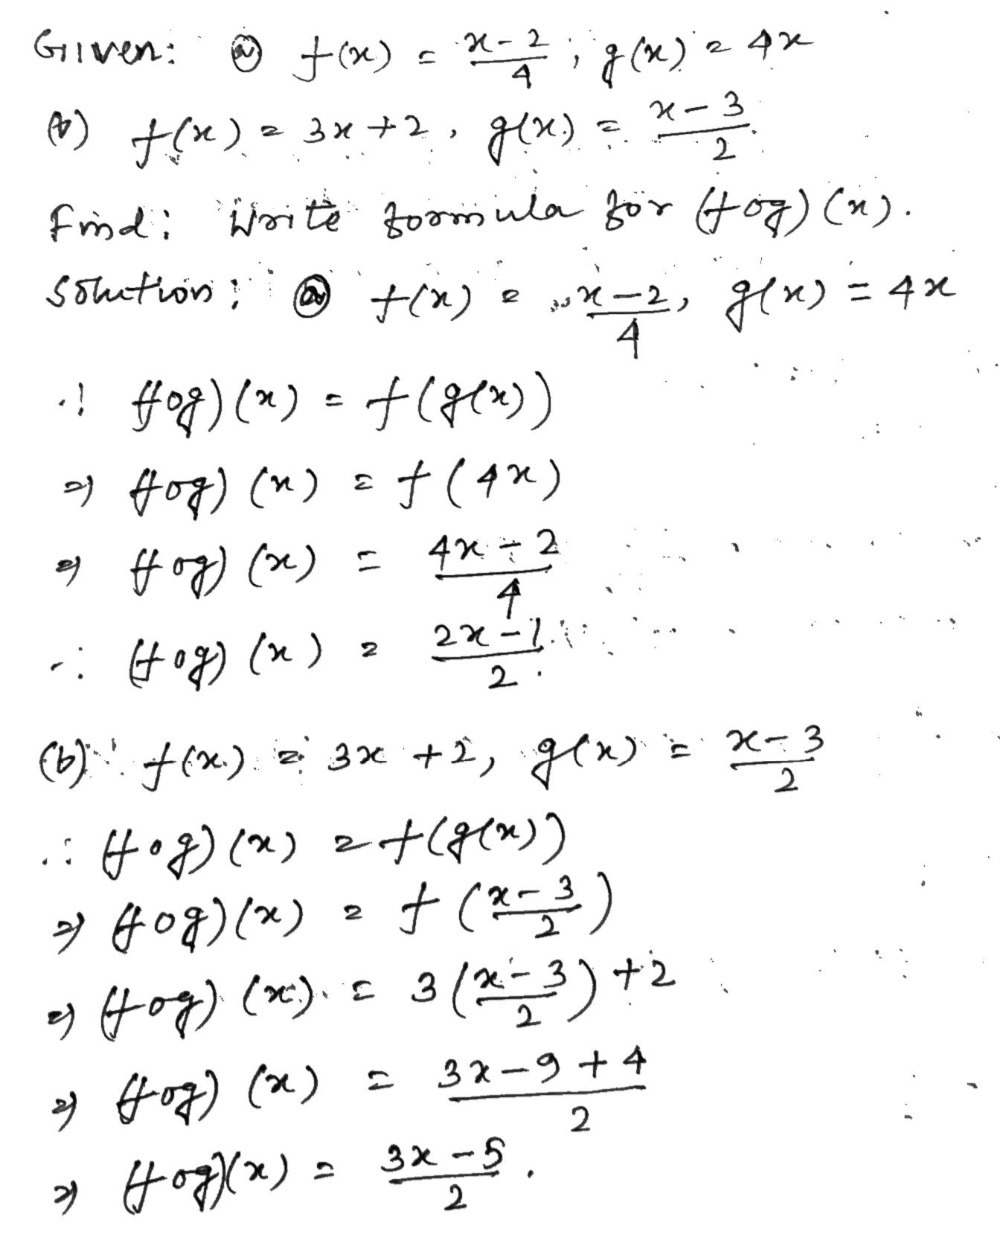 Given: (a) f(x) = (x-2)/4 ; g(x) = 4x
(b) f(x) = 3x+2, g(x) = (x-3)/2.
Find: Write formula for (fog)(x).
Solution: (a) f(x) = (x-2)/4, g(x) = 4x
∴ (fog)(x) = f(g(x))
⇒ (fog)(x) = f(4x)
⇒ (fog)(x) = (4x-2)/4
∴ (fog)(x) = (2x-1)/2.
(b) ∵ f(x) = 3x+2, g(x) = (x-3)/2
∴ (fog)(x) = f(g(x))
⇒ (fog)(x) = f((x-3)/2)
⇒ (fog)(x) = 3((x-3)/2)+2
⇒ (fog)(x) = (3x-9+4)/2
⇒ (fog)(x) = (3x-5)/2.